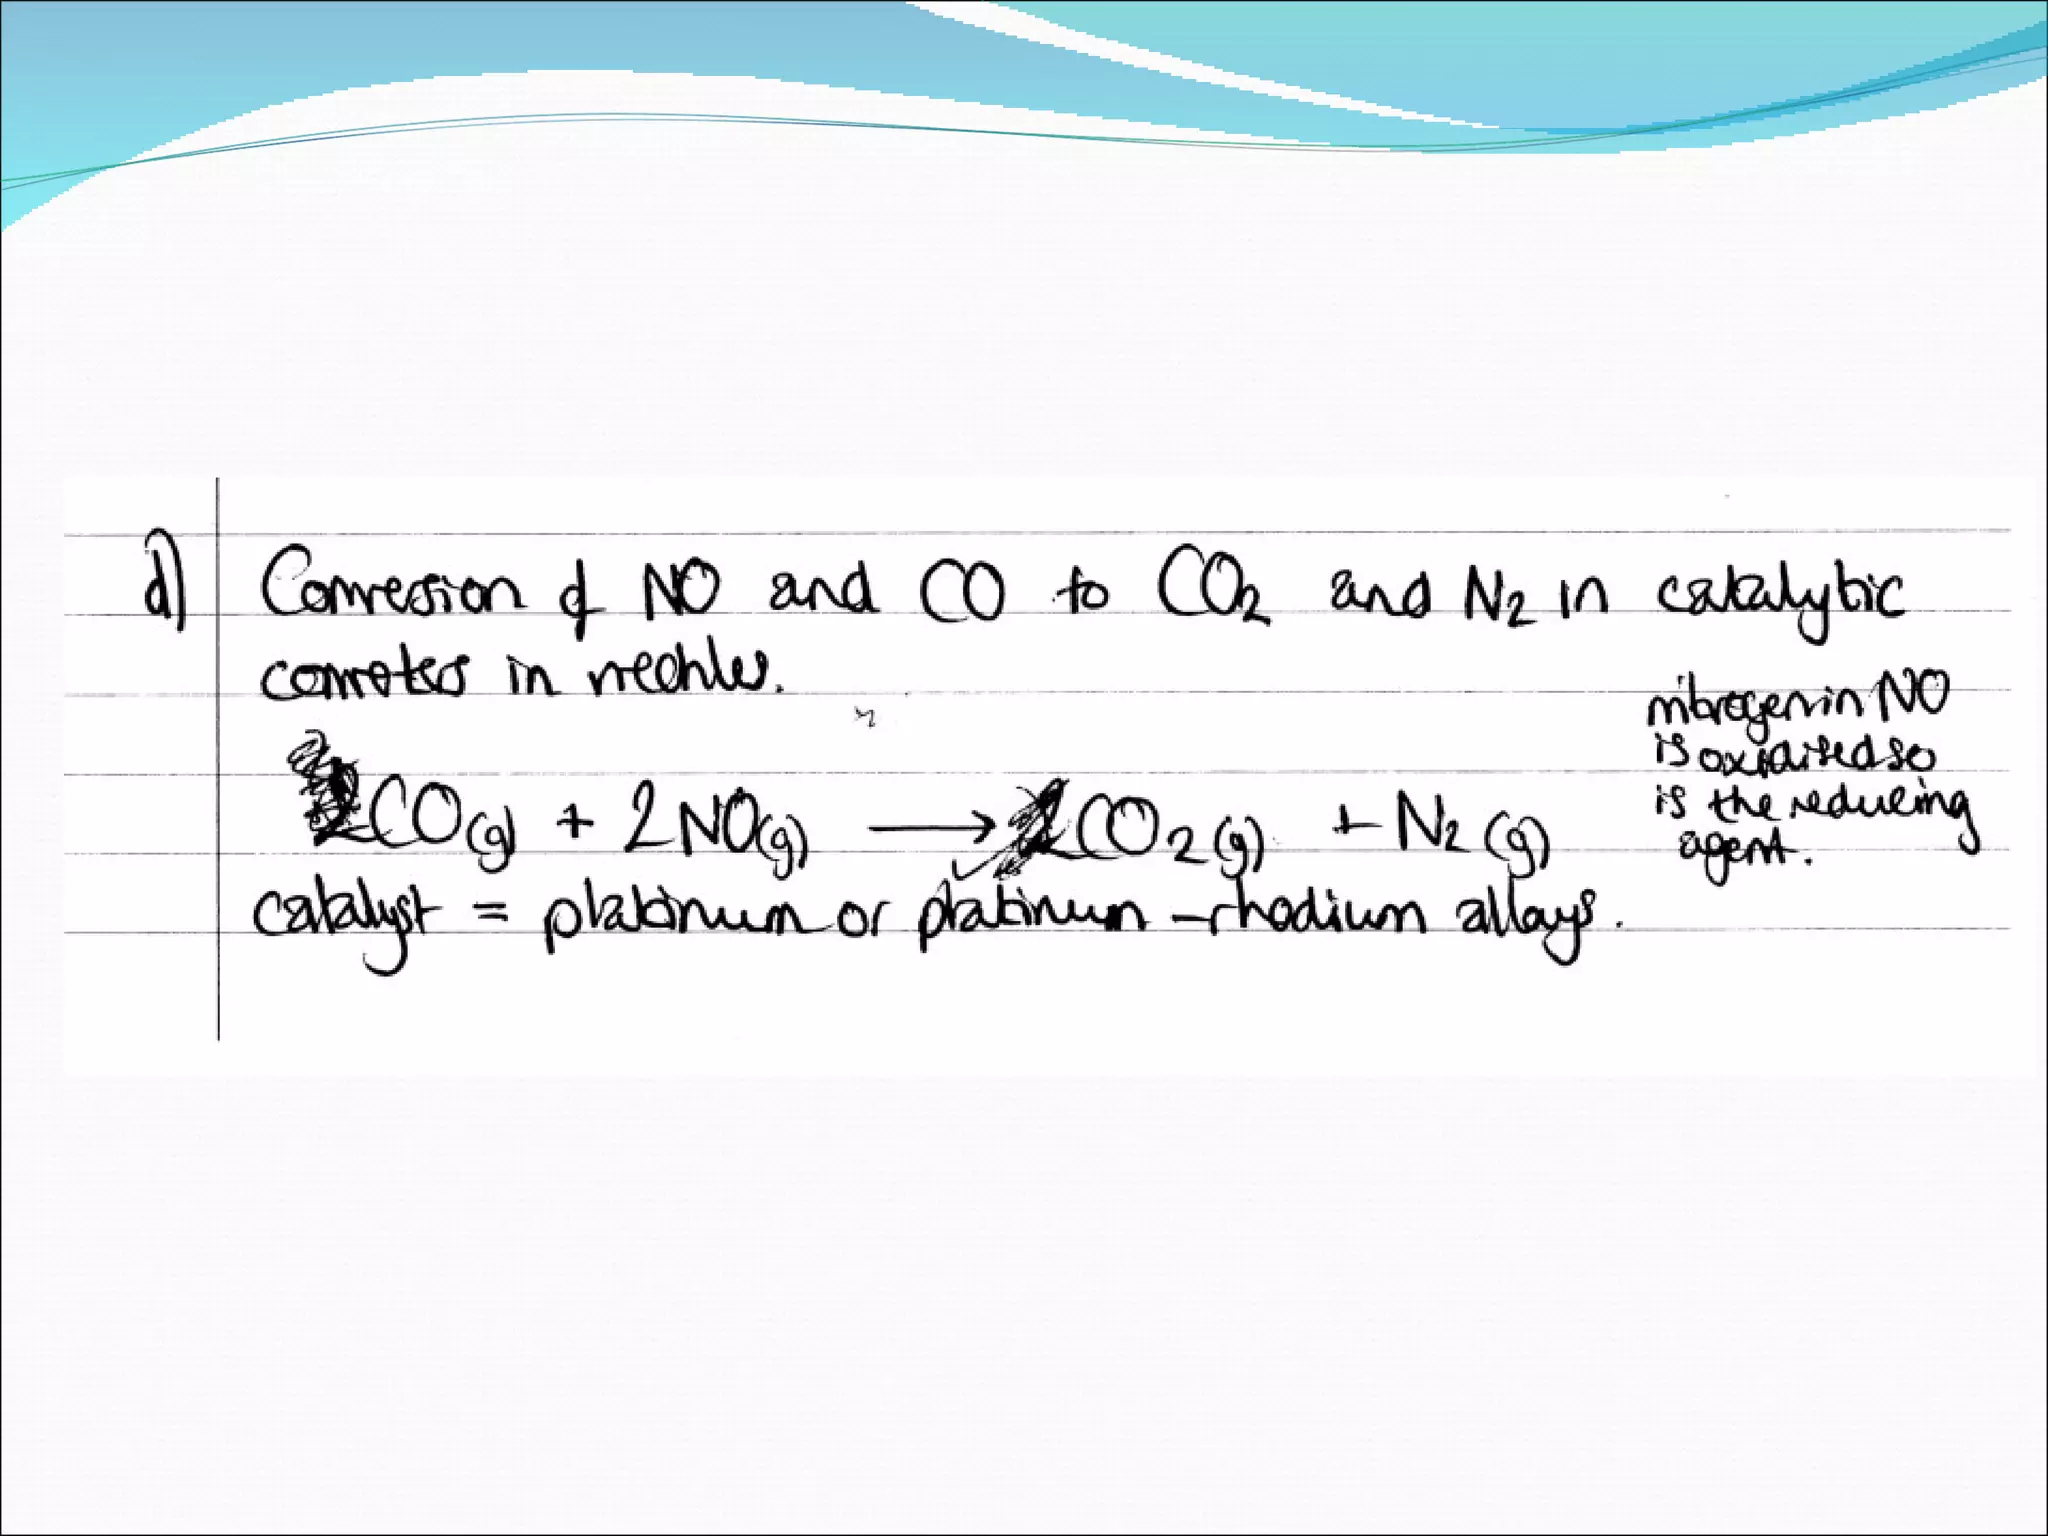 d) Conversion of NO and CO to CO2 and N2 in catalytic
converters in vechles.
nitrogen in NO
is oxidised so
is the reducing
agent.
2CO(g) + 2NO(g) → 2CO2(g) + N2(g)
catalyst = platinum or platinum - rhodium alloys.